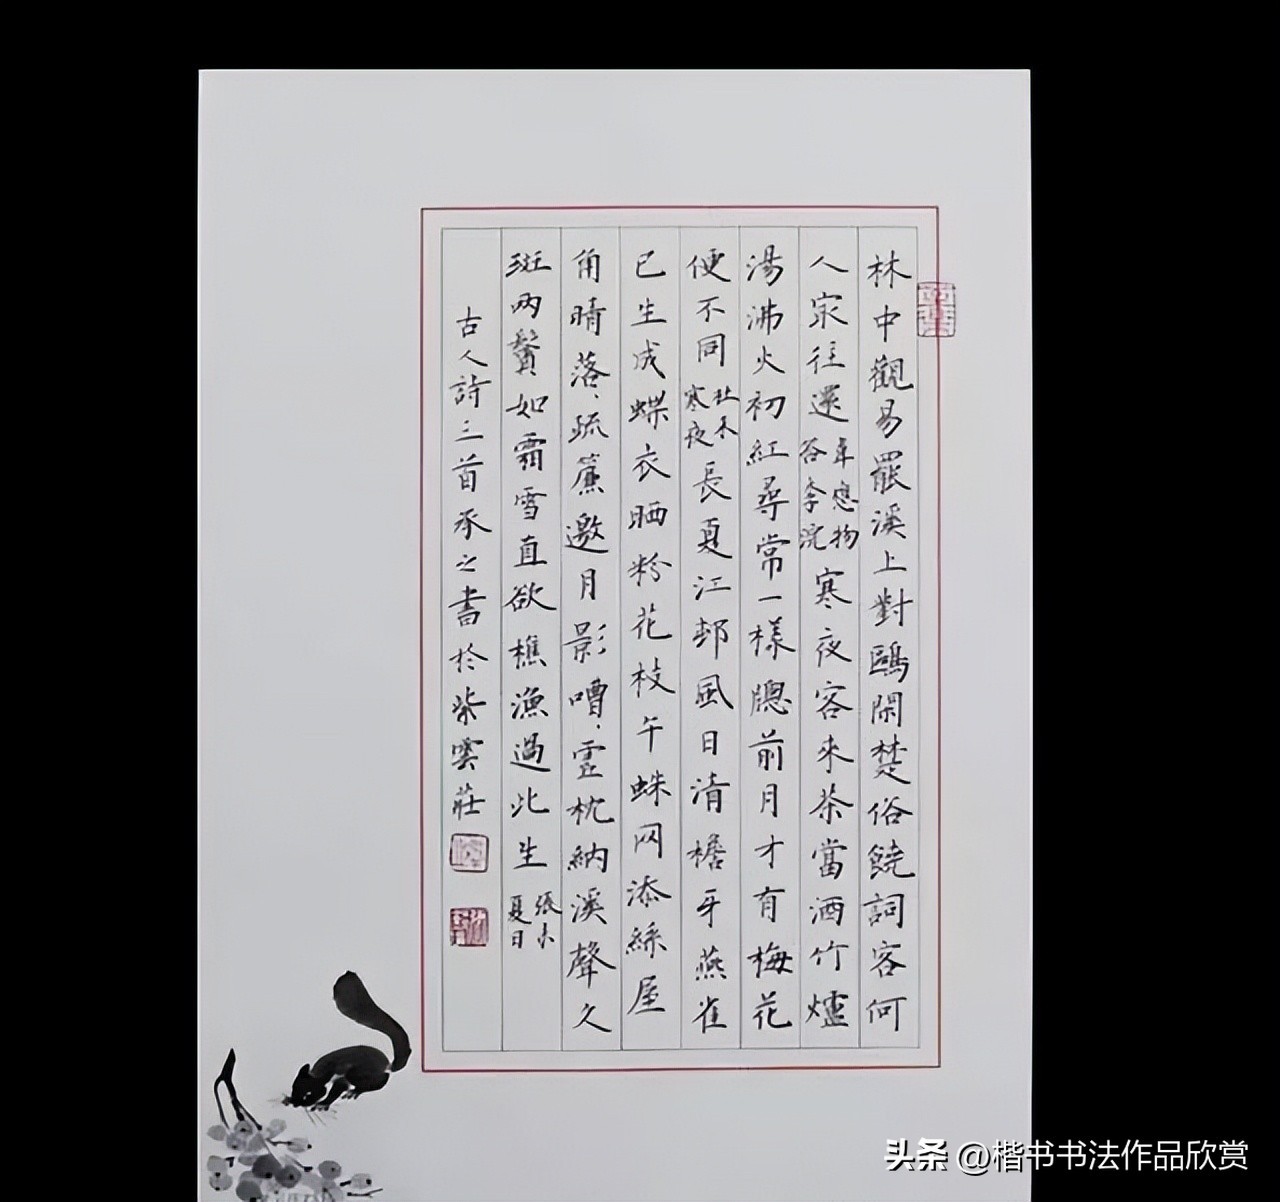 林中觀易罷溪上對鷗閑楚俗饒詞客何
人最往還韋應物答李浣寒夜客來茶當酒竹爐
湯沸火初紅尋常一樣牕前月才有梅花
便不同杜耒寒夜長夏江邨風日清檐牙燕雀
已生成蝶衣晒粉花枝午蛛网添絲屋
角晴落落疏簾邀月影嘈嘈虛枕納溪聲久
斑兩鬢如霜雪直欲樵漁過此生張耒夏日
古人詩三首承之書於紫雲莊
头条 @楷书书法作品欣赏